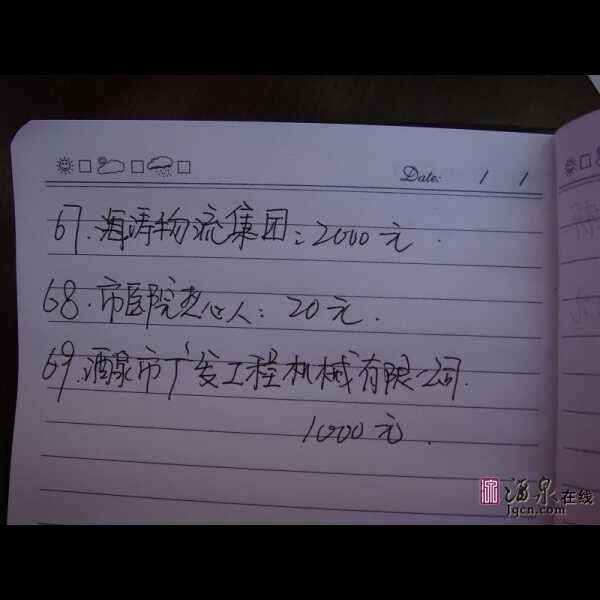 Date: / /
67.海涛物流集团:2000元.
68.市医院热心人:20元.
69.酒泉市广发工程机械有限公司.
1000元.
酒泉在线
Jqcn.com